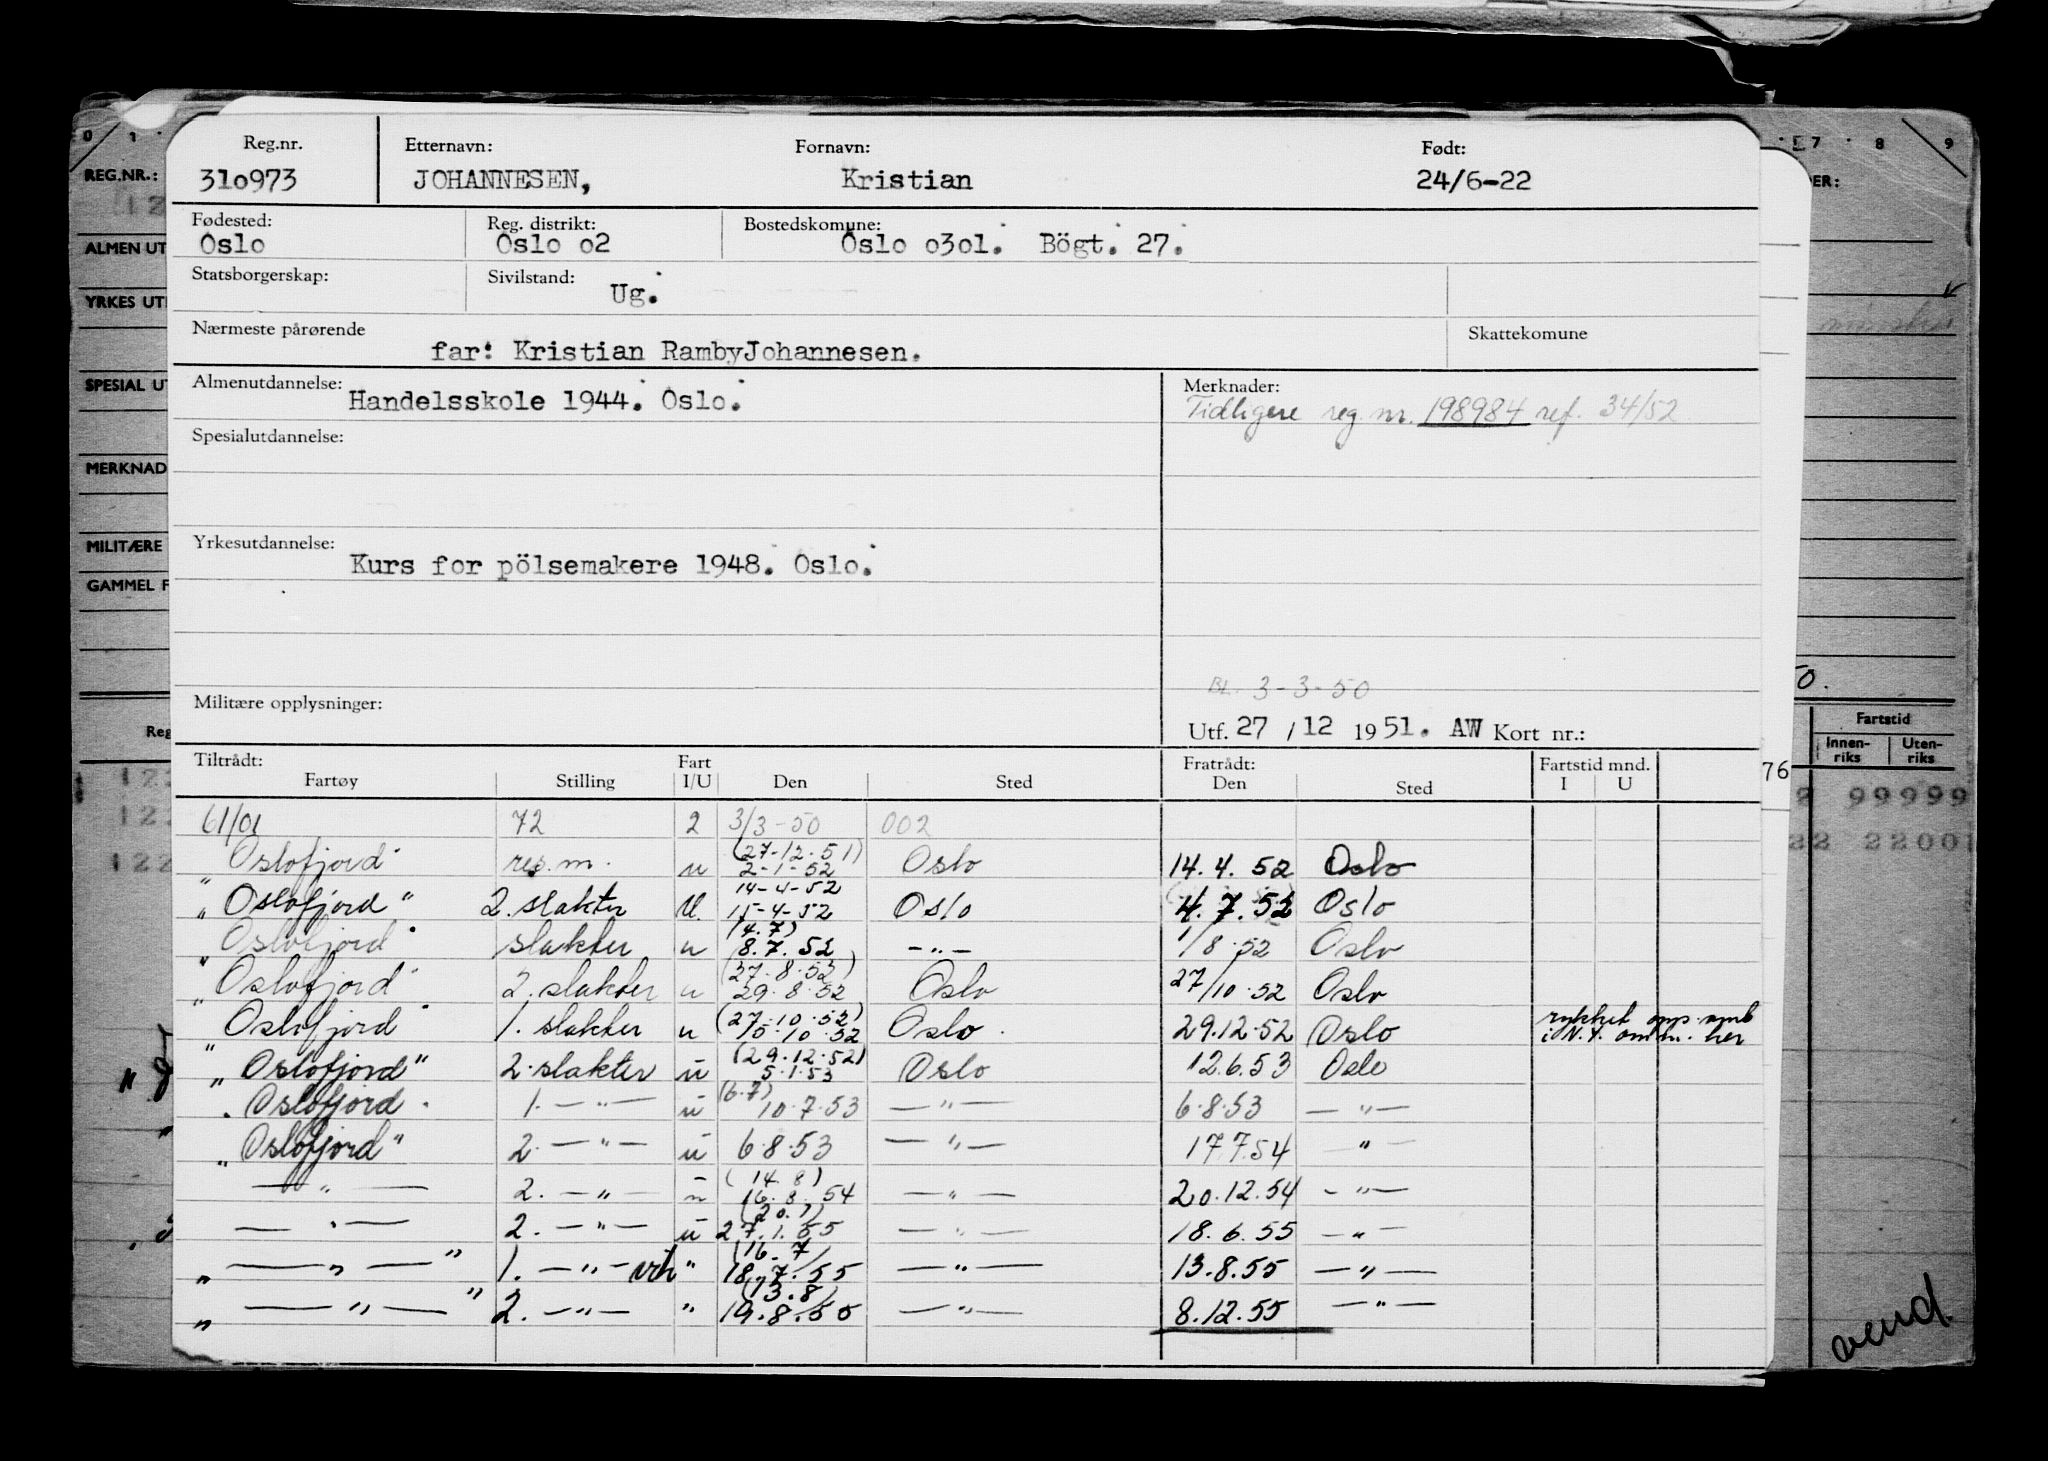 Reg.nr. Etternavn: Fornavn: Født:
31o973 JOHANNESEN, Kristian 24/6-22
Fødested: Reg. distrikt: Bostedskomune:
Oslo Oslo o2 Oslo o3ol. Bögt. 27.
Statsborgerskap: Sivilstand: Ug.
Nærmeste pårørende Skattekomune
far: Kristian RambyJohannesen.
Almenutdannelse: Merknader:
Handelsskole 1944. Oslo. Tidligere reg. nr. 198984 ref. 34/52
Spesialutdannelse:
Yrkesutdannelse:
Kurs for pölsemakere 1948. Oslo.
BL. 3-3-50
Militære opplysninger: Utf. 27 / 12 1951. AW Kort nr.:
Tiltrådt: Fart Fratrådt: Fartstid mnd.
Fartøy Stilling I/U Den Sted Den Sted I U
61/01 72 2 3/3-50 002
"Oslofjord" res.m. u (27-12-51) 2-1-52 Oslo 14.4.52 Oslo
"Oslofjord" 2. slakter U. 14-4-52 15-4-52 Oslo 4.7.52 Oslo
"Oslofjord" slakter u (4.7) 8.7.52 -"- 1/8.52 Oslo
"Oslofjord" 2. slakter u (27.8.52) 29.8.52 Oslo 27/10.52 Oslo
"Oslofjord" 1. slakter u (27.10.52) Oslo 29.12.52 Oslo rykket opp
i N.Y. her
"Oslofjord" 2. slakter u (29.12.52) 5.1.53 Oslo 12.6.53 Oslo
"Oslofjord" 1. -"- u (6.7) 10.7.53 -"- 6.8.53 -"-
"Oslofjord" 2. -"- u 6.8.53 -"- 17.7.54 -"-
-"- 2. -"- u (14.8) 16.8.54 -"- 20.12.54 -"-
-"- 2. -"- u (20.1) 27.1.55 -"- 18.6.55 -"-
"-"-" 1. -"- vik " (16.7) 18.7.55 -"- 13.8.55 -"-
"-"-" 2. -"- " (13.8) 19.8.55 -"- 8.12.55 -"-
REG.NR.:
ALMEN UT
YRKES UT
SPESIAL UT
MERKNAD
MILITÆRE
GAMMEL F
Reg
0 1
7 8 9
ER:
50.
Fartstid
Innen-riks Uten-riks
76
99999
22 22001
vend